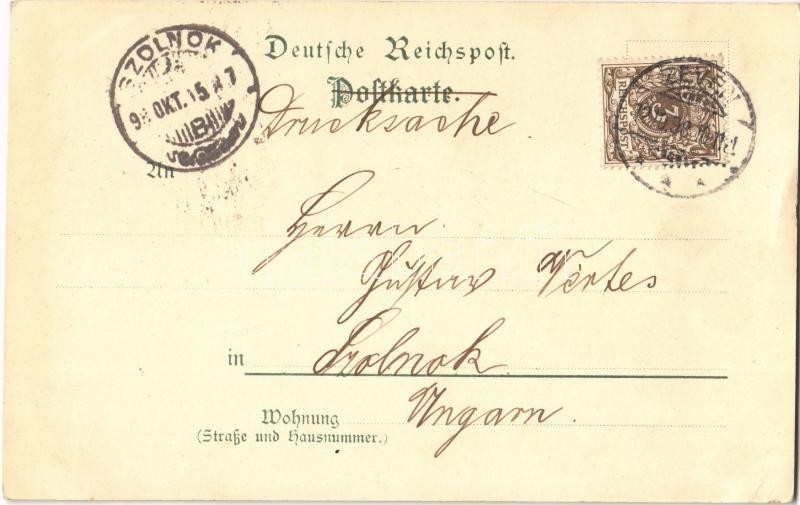 SZOLNOK
98 OKT. 15
Deutsche Reichspost.
Postkarte.
Drucksache
REICHSPOST
3
ZEVEN
An
Herrn
Gustav Vértes
in Szolnok
Ungarn.
Wohnung
(Straße und Hausnummer.)